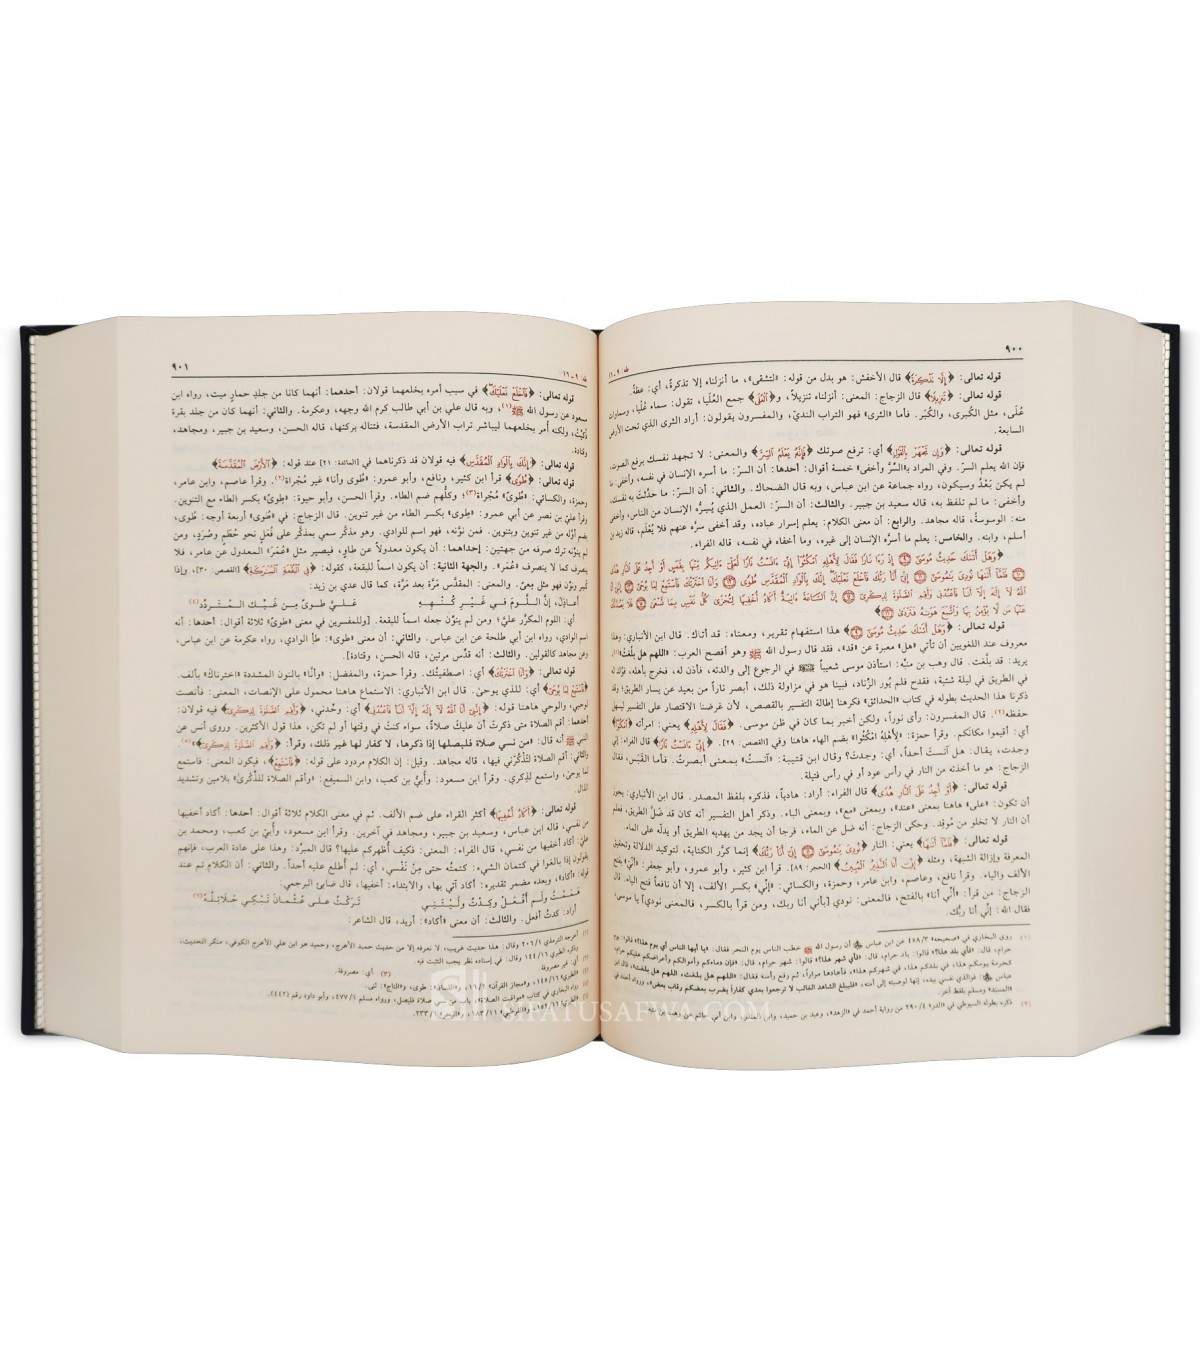 ٩٠٠
طه: ٩ - ١٠
قوله تعالى: ﴿إِلَّا تَذْكِرَةً﴾ قال الأخفش: هو بدل من قوله: «لتشقى»، ما أنزلناه إلا تذكرةً، أي: عظةً.
قوله تعالى: ﴿تَنزِيلًا﴾ قال الزجاج: المعنى: أنزلناه تنزيلاً، و﴿الْعُلَى﴾ جمع العُلْيا، تقول: سماء عُلْيا، وسماوات
عُلَى، مثل الكُبرى، والكُبَر. فأما «الثرى» فهو التراب النديّ، والمفسرون يقولون: أراد الثرى الذي تحت الأرض
السابعة.
قوله تعالى: ﴿وَإِن تَجْهَرْ بِالْقَوْلِ﴾ أي: ترفع صوتك ﴿فَإِنَّهُ يَعْلَمُ السِّرَّ﴾ والمعنى: لا تجهد نفسك برفع الصوت،
فإن الله يعلم السرّ. وفي المراد بـ«السِّرِّ وأخفى» خمسة أقوال: أحدها: أن السرّ: ما أسره الإنسان في نفسه، وأخفى: ما
لم يكن بَعْدُ وسيكون، رواه جماعة عن ابن عباس، وبه قال الضحاك. والثاني: أن السرّ: ما حدَّثتَ به نفسك،
وأخفى: ما لم تلفظ به، قاله سعيد بن جبير. والثالث: أن السرّ: العمل الذي يُسِرُّه الإنسان من الناس، وأخفى
منه: الوسوسةُ، قاله مجاهد. والرابع: أن معنى الكلام: يعلم إسرار عباده، وقد أخفى سرَّه عنهم فلا يُعْلَم، قاله زيد بن
أسلم، وابنه. والخامس: يعلم ما أسرَّه الإنسان إلى غيره، وما أخفاه في نفسه، قاله الفراء.
﴿وَهَلْ أَتَاكَ حَدِيثُ مُوسَىٰ ﴿٩﴾ إِذْ رَءَا نَارًا فَقَالَ لِأَهْلِهِ امْكُثُوا إِنِّي ءَانَسْتُ نَارًا لَّعَلِّي ءَاتِيكُم مِّنْهَا بِقَبَسٍ أَوْ أَجِدُ عَلَى النَّارِ هُدًى
﴿١٠﴾ فَلَمَّا أَتَاهَا نُودِيَ يَامُوسَىٰ ﴿١١﴾ إِنِّي أَنَا رَبُّكَ فَاخْلَعْ نَعْلَيْكَ إِنَّكَ بِالْوَادِ الْمُقَدَّسِ طُوًى ﴿١٢﴾ وَأَنَا اخْتَرْتُكَ فَاسْتَمِعْ لِمَا يُوحَىٰ ﴿١٣﴾ إِنَّنِي أَنَا
اللَّهُ لَا إِلَٰهَ إِلَّا أَنَا فَاعْبُدْنِي وَأَقِمِ الصَّلَاةَ لِذِكْرِي ﴿١٤﴾ إِنَّ السَّاعَةَ ءَاتِيَةٌ أَكَادُ أُخْفِيهَا لِتُجْزَىٰ كُلُّ نَفْسٍ بِمَا تَسْعَىٰ ﴿١٥﴾ فَلَا يَصُدَّنَّكَ
عَنْهَا مَن لَّا يُؤْمِنُ بِهَا وَاتَّبَعَ هَوَاهُ فَتَرْدَىٰ ﴿١٦﴾﴾
قوله تعالى: ﴿وَهَلْ أَتَاكَ حَدِيثُ مُوسَىٰ ﴿٩﴾﴾ هذا استفهام تقرير، ومعناه: قد أتاك. قال ابن الأنباري: وهذا
معروف عند اللغويين أن تأتي «هل» معبرة عن «قد»، فقد قال رسول الله ﷺ وهو أفصح العرب: «اللهم هل بلَّغتُ»(١)
يريد: قد بلَّغت. قال وهب بن منبِّه: استأذن موسى شعيباً في الرجوع إلى والدته، فأذن له، فخرج بأهله، فوُلد له
في الطريق في ليلة شتية، فقدح فلم يُورِ الزِّناد، فبينا هو في مزاولة ذلك، أبصر ناراً من بعيد عن يسار الطريق؛ وقد
ذكرنا هذا الحديث بطوله في كتاب «الحدائق» فكرهنا إطالة التفسير بالقصص، لأن غرضنا الاقتصار على التفسير ليسهل
حفظه(٢). قال المفسرون: رأى نوراً، ولكن أخبر بما كان في ظن موسى. ﴿فَقَالَ لِأَهْلِهِ﴾ يعني: امرأته ﴿امْكُثُوا﴾
أي: أقيموا مكانكم. وقرأ حمزة: «لأهلِهُ امْكُثُوا» بضم الهاء هاهنا وفي [القصص: ٢٩]. ﴿إِنِّي ءَانَسْتُ نَارًا﴾ قال الفراء: إني
وجدت، يقال: هل آنستَ أحداً، أي: وجدتَ؟ وقال ابن قتيبة: «آنستُ» بمعنى أبصرتُ. فأما القَبَس، فقال
الزجاج: هو ما أخذته من النار في رأس عود أو في رأس فتيلة.
قوله تعالى: ﴿أَوْ أَجِدُ عَلَى النَّارِ هُدًى﴾ قال الفراء: أراد: هادياً، فذكره بلفظ المصدر. قال ابن الأنباري: يجوز
أن تكون: «على» هاهنا بمعنى «عند»، وبمعنى «مع»، وبمعنى الباء. وذكر أهل التفسير أنه كان قد ضَلَّ الطريق، فعلم
أن النار لا تخلو من مُوقد. وحكى الزجاج: أنه ضل عن الماء، فرجا أن يجد من يهديه الطريق أو يدلّه على الماء.
قوله تعالى: ﴿فَلَمَّا أَتَاهَا﴾ يعني: النار ﴿نُودِيَ يَامُوسَىٰ ﴿١١﴾ إِنِّي أَنَا رَبُّكَ﴾ إنما كرَّر الكناية، لتوكيد الدلالة وتحقيق
المعرفة وإزالة الشبهة، ومثله ﴿إِنِّي أَنَا النَّذِيرُ الْمُبِينُ﴾ [الحجر: ٨٩]. قرأ ابن كثير، وأبو عمرو، وأبو جعفر: «أَنِّي» بفتح
الألف والياء. وقرأ نافع، وعاصم، وابن عامر، وحمزة، والكسائي: «إِنِّي» بكسر الألف، إلا أن نافعاً فتح الياء. قال
الزجاج: من قرأ: «أَنِّي أنا» بالفتح، فالمعنى: نودي [بأني أنا ربك، ومن قرأ بالكسر، فالمعنى نودي] يا موسى،
فقال الله: إنِّي أنا ربُّك.
(١) روى البخاري في «صحيحه» ٤٥٨/٣ عن ابن عباس أن رسول الله ﷺ خطب الناس يوم النحر فقال: «يا أيها الناس أي يوم هذا؟» قالوا: يوم
حرام، قال: «فأي بلد هذا؟» قالوا: بلد حرام، قال: «فأي شهر هذا؟» قالوا: شهر حرام، قال: «فإن دماءكم وأموالكم وأعراضكم عليكم حرام،
كحرمة يومكم هذا، في بلدكم هذا، في شهركم هذا»، فأعادها مراراً، ثم رفع رأسه فقال: «اللهم هل بلغت، اللهم هل بلغت»، قال ابن
عباس: فوالذي نفسي بيده، إنها لوصيته إلى أمته، «فليبلغ الشاهد الغائب لا ترجعوا بعدي كفاراً يضرب بعضكم رقاب بعض»، ورواه أحمد في
«المسند» ومسلم بلفظ آخر.
(٢) ذكره بطوله السيوطي في «الدر» ٢٩٠/٤ من رواية أحمد في «الزهد»، وعبد بن حميد، وابن المنذر، وابن أبي حاتم عن وهب بن منبه.
٩٠١
طه: ٩ - ١٦
قوله تعالى: ﴿فَاخْلَعْ نَعْلَيْكَ﴾ في سبب أمره بخلعهما قولان: أحدهما: أنهما كانا من جلدِ حمارٍ ميت، رواه ابن
مسعود عن رسول الله ﷺ(١)، وبه قال علي بن أبي طالب كرم الله وجهه، وعكرمة. والثاني: أنهما كان من جلد بقرة
ذُكِّيتْ، ولكنه أُمر بخلعهما ليباشر تراب الأرض المقدسة، فتناله بركتها، قاله الحسن، وسعيد بن جبير، ومجاهد،
وقتادة.
قوله تعالى: ﴿إِنَّكَ بِالْوَادِ الْمُقَدَّسِ﴾ فيه قولان قد ذكرناهما في [المائدة: ٢١] عند قوله: ﴿الْأَرْضَ الْمُقَدَّسَةَ﴾
قوله تعالى: ﴿طُوًى﴾ قرأ ابن كثير، ونافع، وأبو عمرو: «طُوى وأنا» غير مُجْراة(٢). وقرأ عاصم، وابن عامر،
وحمزة، والكسائي: «طُوىً» مُجْراة(٣)؛ وكلُّهم ضم الطاء. وقرأ الحسن، وأبو حيوة: «طِوىً» بكسر الطاء مع التنوين.
وقرأ عليّ بن نصر عن أبي عمرو: «طِوى» بكسر الطاء من غير تنوين. قال الزجاج: في «طُوى» أربعة أوجه: طُوى،
بضم أوَّله من غير تنوين وبتنوين. فمن نوَّنه، فهو اسم للوادي. وهو مذكَّر سمي بمذكَّر على فُعَلٍ نحو حُطَمٍ وصُرَدٍ، ومن
لم ينوِّنه ترك صرفه من جهتين: إحداهما: أن يكون معدولاً عن طاوٍ، فيصير مثل «عُمَرَ» المعدول عن عامر، فلا
ينصرف كما لا ينصرف «عُمَر». والجهة الثانية: أن يكون اسماً للبقعة، كقوله: ﴿فِي الْبُقْعَةِ الْمُبَارَكَةِ﴾ [القصص: ٣٠]، وإذا
كُسِر ونوِّن فهو مثل مِعىً. والمعنى: المقدَّس مَرَّة بعد مَرَّة، كما قال عدي بن زيد:
أعاذِلَ، إنَّ اللَّومَ في غَيْرِ كُنْهِهِ عَلَيَّ طوىً مِن غَيِّكِ المُتَرَدِّدِ(٤)
أي: اللوم المكرَّر عليَّ؛ ومن لم ينوِّن جعله اسماً للبقعة. [وللمفسرين في معنى «طوىً» ثلاثة أقوال: أحدها: أنه
اسم الوادي، رواه ابن أبي طلحة عن ابن عباس. والثاني: أن معنى «طوى»: طأِ الوادي، رواه عكرمة عن ابن عباس،
وعن مجاهد كالقولين. والثالث: أنه قدِّس مرتين، قاله الحسن، وقتادة].
قوله تعالى: ﴿وَأَنَا اخْتَرْتُكَ﴾ أي: اصطفيتُك. وقرأ حمزة، والمفضل: «وأنَّا» بالنون المشددة «اخترناك» بألف.
﴿فَاسْتَمِعْ لِمَا يُوحَىٰ﴾ أي: للذي يوحى. قال ابن الأنباري: الاستماع هاهنا محمول على الإنصات، المعنى: فأنصت
لوحيي، والوحي هاهنا قوله: ﴿إِنَّنِي أَنَا اللَّهُ لَا إِلَٰهَ إِلَّا أَنَا فَاعْبُدْنِي﴾ أي: وحِّدني، ﴿وَأَقِمِ الصَّلَاةَ لِذِكْرِي﴾ فيه قولان:
أحدهما: أقم الصلاة متى ذكرتَ أن عليك صلاةً، سواء كنتَ في وقتها أو لم تكن، هذا قول الأكثرين. وروى أنس عن
النبي ﷺ أنه قال: «من نسي صلاة فليصلها إذا ذكرها، لا كفار لها غير ذلك، وقرأ: ﴿وَأَقِمِ الصَّلَاةَ لِذِكْرِي﴾»(٥)
والثاني: أقم الصلاة لتَذْكُرَني فيها، قاله مجاهد. وقيل: إن الكلام مردود على قوله: ﴿فَاسْتَمِعْ﴾، فيكون المعنى: فاستمع
لما يوحى، واستمع لذِكري. وقرأ ابن مسعود، وأُبيُّ بن كعب، وابن السميفع: «وأقم الصلاة للذِّكْرى» بلامين وتشديد
الذال.
قوله تعالى: ﴿أَكَادُ أُخْفِيهَا﴾ أكثر القراء على ضم الألف. ثم في معنى الكلام ثلاثة أقوال: أحدها: أكاد أخفيها
من نفسي، قاله ابن عباس، وسعيد بن جبير، ومجاهد في آخرين. وقرأ ابن مسعود، وأُبيّ بن كعب، ومحمد بن
عليّ: أكاد أخفيها من نفسي، قال الفراء: المعنى: فكيف أُظهِركم عليها؟ قال المبرِّد: وهذا على عادة العرب، فإنهم
يقولون إذا بالغوا في كتمان الشيء: كتمتُه حتى مِنْ نَفْسي، أي: لم أُطلع عليه أحداً. والثاني: أن الكلام تم عند
قوله: «أكاد»، وبعده مضمر تقديره: أكاد آتي بها، والابتداء: أخفيها، قال ضابئ البرجمي:
هَمَمْتُ ولَم أَفْعَلْ وكِدْتُ ولَيْتَنِي تَرَكْتُ على عُثمانَ تَبْكي حَلائِلُهْ(٦)
أراد: كدتُ أفعل. والثالث: أن معنى «أكاد»: أريد، قال الشاعر:
(١) أخرجه الترمذي ٢٠٦/١ وقال: هذا حديث غريب، لا نعرفه إلا من حديث حميد الأعرج، وحميد هو ابن علي الأعرج الكوفي، منكر الحديث،
وذكره الطبري ١٤٤/١٦ وقال: في إسناده نظر يجب التثبت فيه.
(٢) أي: غير مصروفة. (٣) أي: مصروفة.
(٤) «الطبري» ١٤٥/١٦، و«مجاز القرآن» ١٦/٢، و«اللسان»: طوى، و«التاج»: ثنى.
SIFATUSAFWA.COM